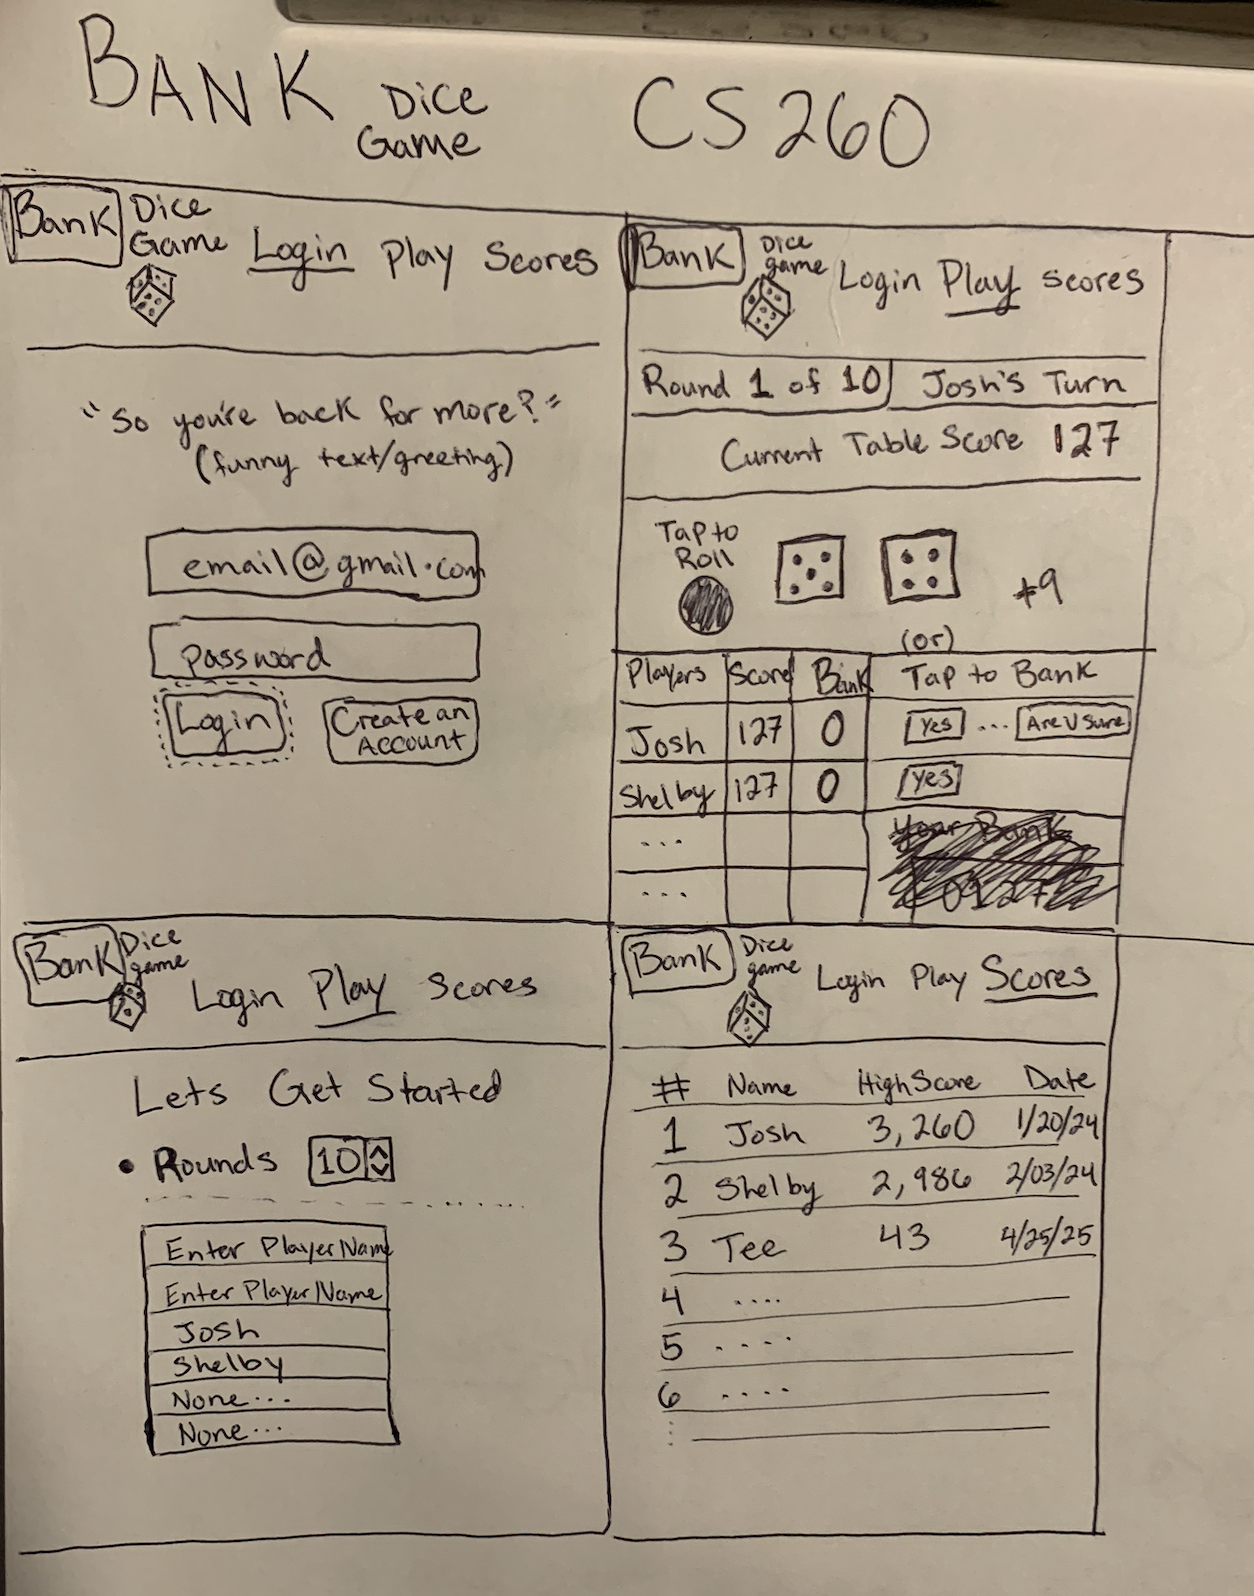 BANK Dice Game CS 260
Bank Dice Game Login Play Scores
"So you're back for more?"
(funny text/greeting)
email@gmail.com
password
Login
Create an
Account
Bank Dice game Login Play scores
Round 1 of 10 Josh's Turn
Current Table Score 127
Tap to
Roll
+9
(or)
Players Score Bank Tap to Bank
Josh 127 0 Yes ... Are U Sure
Shelby 127 0 Yes
...
...
Bank Dice game Login Play Scores
Lets Get Started
• Rounds 10
Enter Player/Name
Enter Player/Name
Josh
Shelby
None ...
None ...
Bank Dice game Login Play Scores
# Name High Score Date
1 Josh 3,260 1/20/24
2 Shelby 2,986 2/03/24
3 Tee 43 4/25/25
4 ....
5 ....
6 ....